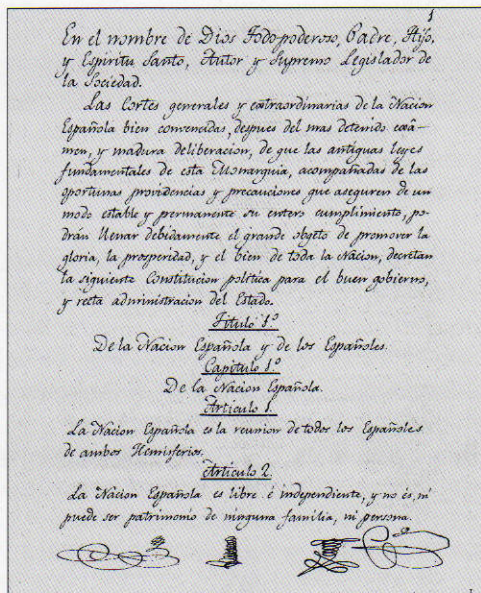 1
En el nombre de Dios Todopoderoso, Padre, Hijo,
y Espiritu Santo, Autor y Supremo Legislador de
la Sociedad.
Las Cortes generales y extraordinarias de la Nacion
Española bien convencidas, despues del mas detenido exâ-
men, y madura deliberacion, de que las antiguas leyes
fundamentales de esta Monarquia, acompañadas de las
oportunas providencias y precauciones que aseguren de un
modo estable y permanente su entero cumplimiento, po-
drán llenar debidamente el grande objeto de promover la
gloria, la prosperidad, y el bien de toda la Nacion, decretan
la siguiente Constitucion política para el buen gobierno,
y recta administracion del Estado.
Título 1.º
De la Nacion Española y de los Españoles.
Capítulo 1.º
De la Nacion Española.
Artículo 1.
La Nacion Española es la reunion de todos los Españoles
de ambos Hemisferios.
Artículo 2.
La Nacion Española es libre é independiente, y no és, ni
puede ser patrimonio de ninguna familia, ni persona.